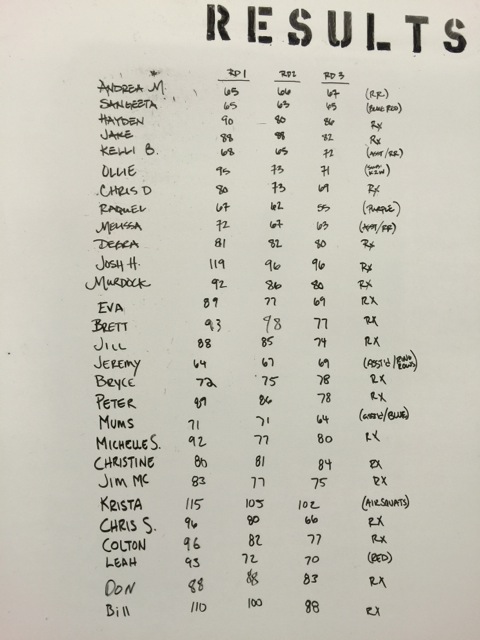 RESULTS
RD 1 RD2 RD 3
ANDREA M. 65 66 67 (RR)
SANGEETA 65 63 65 (BLUE RED)
HAYDEN 90 80 86 RX
JAKE 88 88 82 RX
KELLI B. 68 65 72 (ASST/RR)
OLLIE 95 73 71
CHRIS D 80 73 69 RX
RAQUEL 67 62 55 (PURPLE)
MELISSA 72 67 63 (ASST/RR)
DEBRA 81 82 80 RX
JOSH H. 119 96 96 RX
MURDOCK 92 86 80 RX
EVA 89 77 69 RX
BRETT 93 98 77 RX
JILL 88 85 74 RX
JEREMY 64 67 69 (ASST'd/RING ROWS)
BRYCE 72 75 78 RX
PETER 89 86 78 RX
MUMS 71 71 64 (ASST'd/BLUE)
MICHELLE S. 92 77 80 RX
CHRISTINE 80 81 84 RX
JIM MC 83 77 75 RX
KRISTA 115 105 102 (AIRSQUATS)
CHRIS S. 96 80 66 RX
COLTON 96 82 77 RX
LEAH 93 72 70 (RED)
DON 88 88 83 RX
Bill 110 100 88 RX